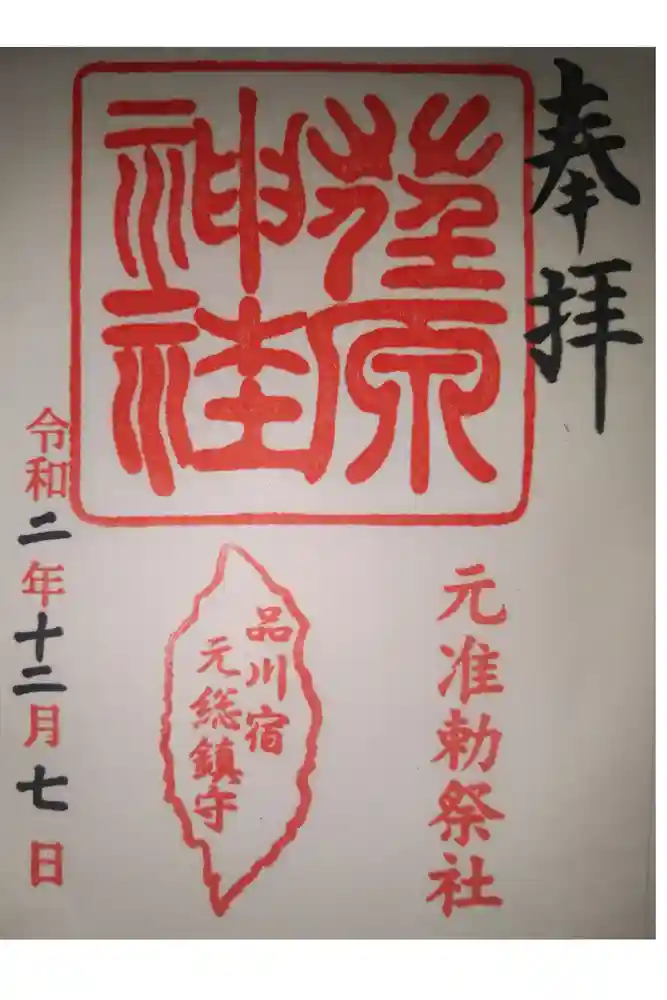 奉拝
荏原
神社
元准勅祭社
品川宿
元総鎮守
令和二年十二月七日